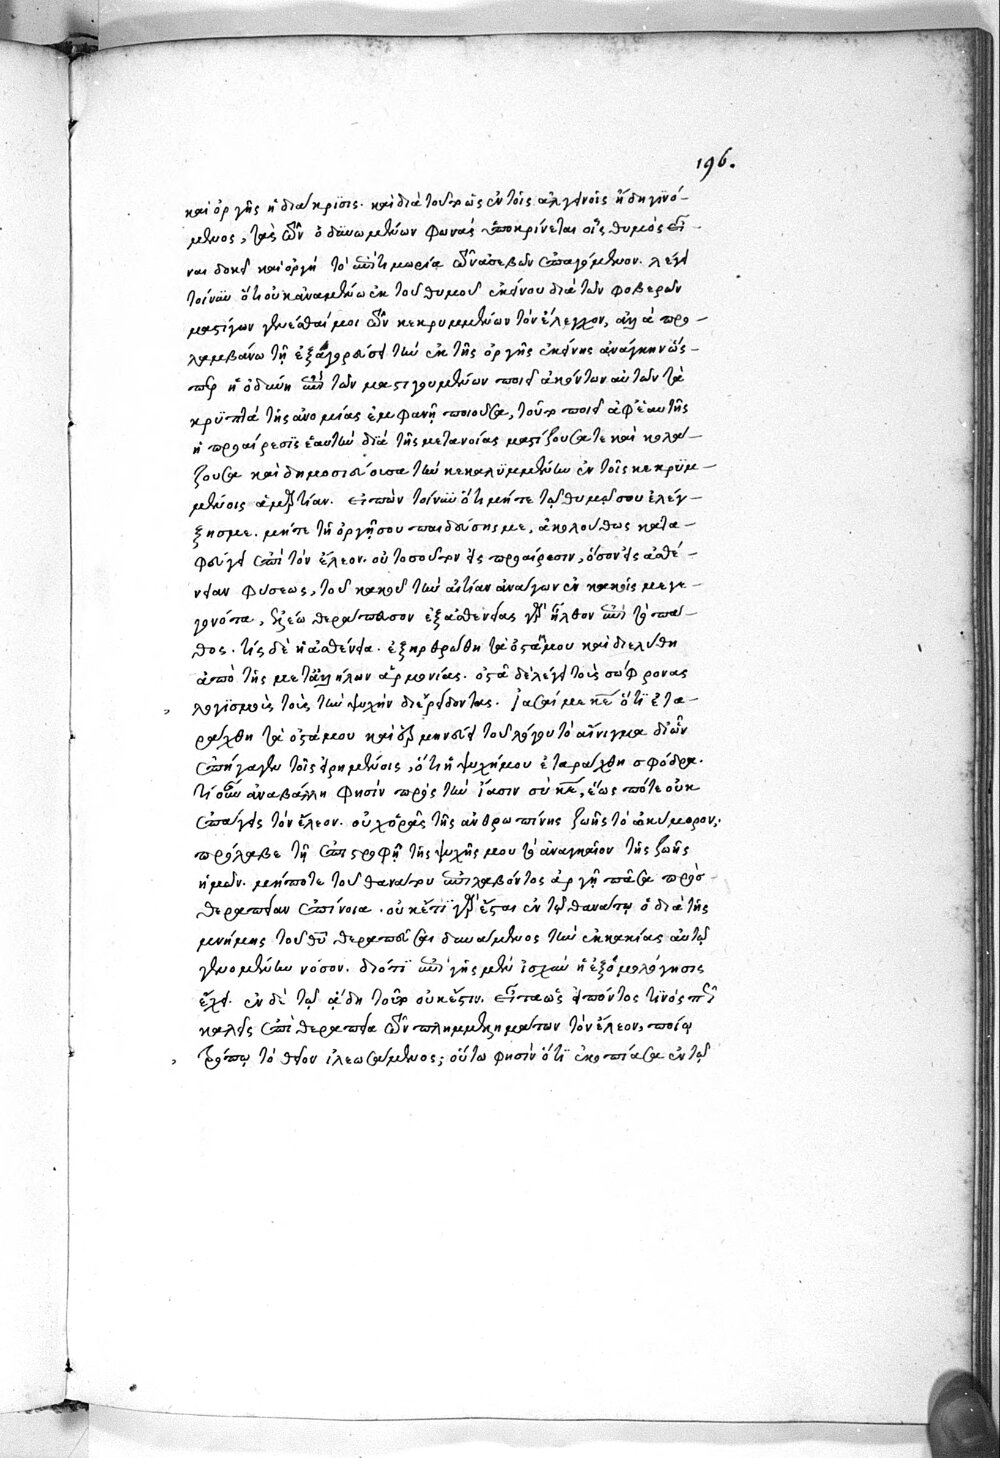 196.
καὶ ὀργῆς ἡ διάκρισις. καὶ διὰ τοῦτο ὡς ἐν τοῖς ἀλγεινοῖς ἤδη γινό-
μενος, τὰς τῶν ὀδυνωμένων φωνὰς ὑποκρίνεται οἷς θυμὸς εἶ-
ναι δοκεῖ καὶ ὀργὴ τὸ ἐπὶ τιμωρία τῶν ἀσεβῶν ἐπαγόμενον. λέγει
τοίνυν ὅτι οὐκ ἀναμένω ἐκ τοῦ θυμοῦ ἐκείνου διὰ τῶν φοβερῶν
μαστίγων γενέσθαι μοι τῶν κεκρυμμένων τὸν ἔλεγχον, ἀλλὰ προ-
λαμβάνω τῇ ἐξαγορεύσει τὴν ἐκ τῆς ὀργῆς ἐκείνης ἀνάγκην ὥς-
περ ἡ ὀδύνη ἐπὶ τῶν μαστιγουμένων ποιεῖ ἀκόντων αὐτῶν τὰ
κρυπτὰ τῆς ἀνομίας ἐμφανῆ ποιοῦσα, τοῦτο ποιεῖ ἀφ' ἑαυτῆς
ἡ προαίρεσις ἑαυτὴν διὰ τῆς μετανοίας μαστίζουσα τε καὶ κολά-
ζουσα καὶ δημοσιεύουσα τὴν κεκαλυμμένην ἐν τοῖς κεκρυμ-
μένοις ἁμαρτίαν. εἰπὼν τοίνυν ὅτι μήτε τῷ θυμῷ σου ἐλέγ-
ξῃς με. μήτε τῇ ὀργῇ σου παιδεύσῃς με, ἀκολούθως κατα-
φεύγει ἐπὶ τὸν ἔλεον. οὐ τοσοῦτον εἰς προαίρεσιν, ὅσον εἰς ἀσθέ-
νειαν φύσεως, τοῦ κακοῦ τὴν αἰτίαν ἀνάγων ἐν κακοῖς με γε-
γονότα, θεράπευσον ἐξ ἀσθενείας γὰρ ἦλθον ἐπὶ τὸ πά-
θος. τίς δὲ ἡ ἀσθένεια. ἐξηρθρώθη τὰ ὀστᾶ μου καὶ διελύθη
ἀπὸ τῆς μετ' ἀλλήλων ἁρμονίας. ὀστᾶ δὲ λέγει τοὺς σώφρονας
λογισμοὺς τοὺς τὴν ψυχὴν διερείδοντας. ἴασαί με κε ὅτι ἐτα-
ράχθη τὰ ὀστᾶ μου καὶ ἑρμηνεύει τοῦ λόγου τὸ αἴνιγμα δι' ὧν
ἐπήγαγε τοῖς εἰρημένοις, ὅτι ἡ ψυχή μου ἐταράχθη σφόδρα.
τί οὖν ἀναβάλλῃ φησὶν πρὸς τὴν ἴασιν σὺ κε, ἕως πότε οὐκ
ἐπάγεις τὸν ἔλεον. οὐχ ὁρᾷς τῆς ἀνθρωπίνης ζωῆς τὸ ὠκύμορον.
πρόλαβε τῇ ἐπιστροφῇ τῆς ψυχῆς μου τὸ ἀναγκαῖον τῆς ζωῆς
ἡμῶν. μήποτε τοῦ θανάτου ἐπιλαβόντος ἀργῇ πᾶσα πρὸς
θεραπείαν ἐπίνοια. οὐκέτι γὰρ ἔσται ἐν τῷ θανάτῳ ὁ διὰ τῆς
μνήμης τοῦ θυ θεραπεῦσαι δυνάμενος τὴν ἐκ κακίας αὐτῷ
γενομένην νόσον. διότι ἐπὶ γῆς μὲν ἰσχὺν ἡ ἐξομολόγησις
ἔχει. ἐν δὲ τῷ ᾅδῃ τοῦτο οὐκ ἔστιν. εἶτα ὡς εἰπόντος τινὸς
καλεῖς ἐπὶ θεραπείᾳ τῶν πλημμελημάτων τὸν ἔλεον, ποίῳ
τρόπῳ τὸ θεῖον ἱλεωσάμενος; οὕτω φησὶν ὅτι ἐκοπίασα ἐν τῷ